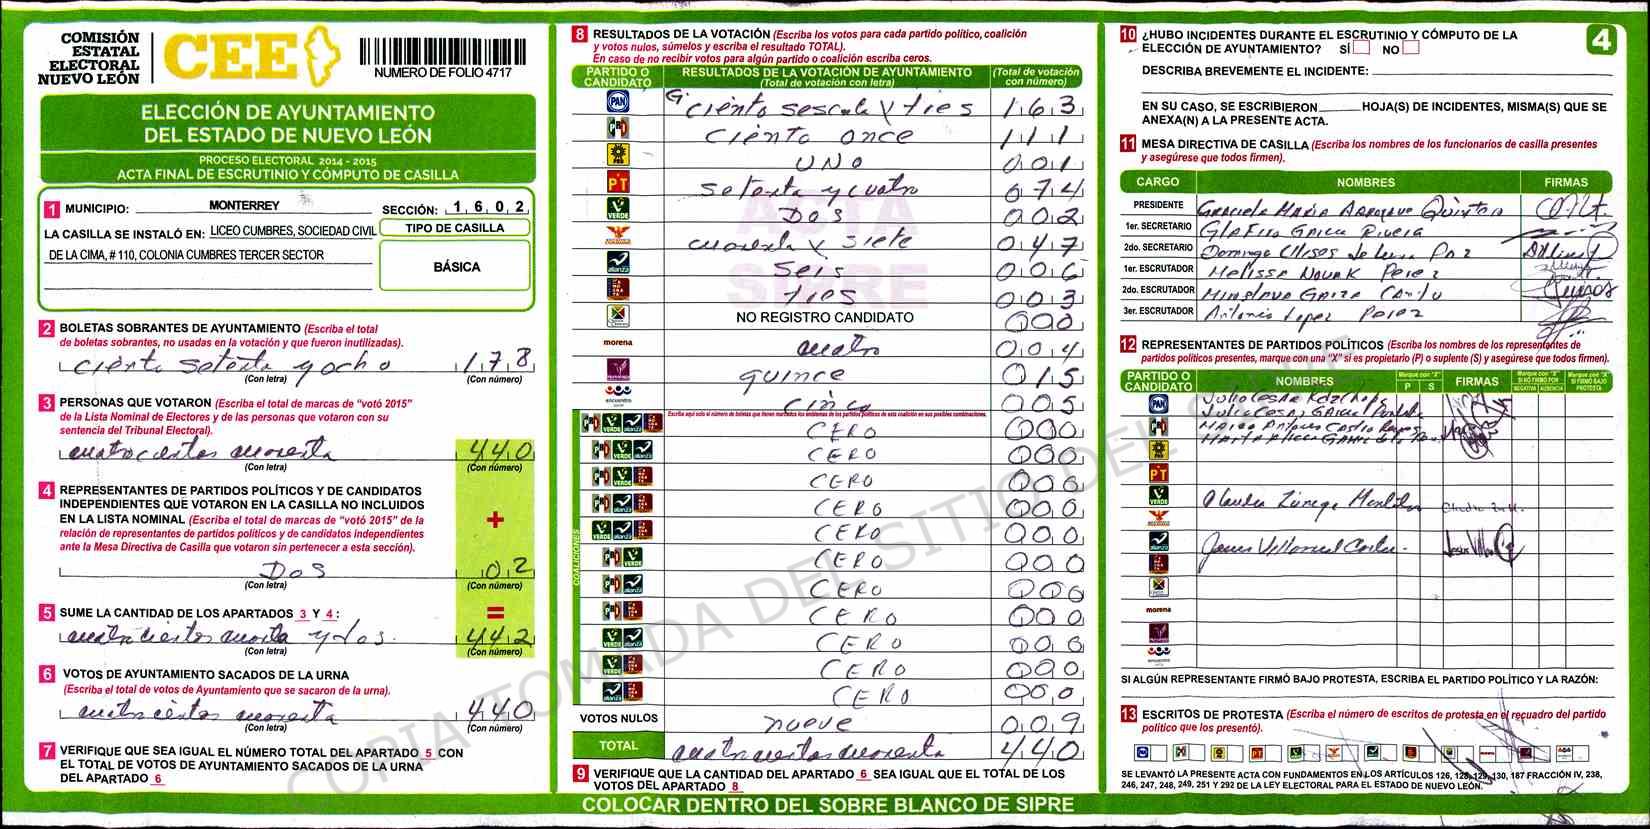 COMISIÓN
ESTATAL
ELECTORAL
NUEVO LEÓN
CEE
NUMERO DE FOLIO 4717
ELECCIÓN DE AYUNTAMIENTO
DEL ESTADO DE NUEVO LEÓN
PROCESO ELECTORAL 2014 - 2015
ACTA FINAL DE ESCRUTINIO Y CÓMPUTO DE CASILLA
1 MUNICIPIO: MONTERREY SECCIÓN: 1602
LA CASILLA SE INSTALÓ EN: LICEO CUMBRES, SOCIEDAD CIVIL
DE LA CIMA, # 110, COLONIA CUMBRES TERCER SECTOR
TIPO DE CASILLA
BÁSICA
2 BOLETAS SOBRANTES DE AYUNTAMIENTO (Escriba el total
de boletas sobrantes, no usadas en la votación y que fueron inutilizadas).
ciento setenta y ocho 178
(Con letra) (Con número)
3 PERSONAS QUE VOTARON (Escriba el total de marcas de “votó 2015”
de la Lista Nominal de Electores y de las personas que votaron con su
sentencia del Tribunal Electoral).
440
(Con letra) (Con número)
4 REPRESENTANTES DE PARTIDOS POLÍTICOS Y DE CANDIDATOS
INDEPENDIENTES QUE VOTARON EN LA CASILLA NO INCLUIDOS
EN LA LISTA NOMINAL (Escriba el total de marcas de “votó 2015” de la
relación de representantes de partidos políticos y de candidatos independientes
ante la Mesa Directiva de Casilla que votaron sin pertenecer a esta sección).
+
DOS 02
(Con letra) (Con número)
5 SUME LA CANTIDAD DE LOS APARTADOS 3 Y 4 : =
442
(Con letra) (Con número)
6 VOTOS DE AYUNTAMIENTO SACADOS DE LA URNA
(Escriba el total de votos de Ayuntamiento que se sacaron de la urna).
440
(Con letra) (Con número)
7 VERIFIQUE QUE SEA IGUAL EL NÚMERO TOTAL DEL APARTADO 5 CON
EL TOTAL DE VOTOS DE AYUNTAMIENTO SACADOS DE LA URNA
DEL APARTADO 6
8 RESULTADOS DE LA VOTACIÓN (Escriba los votos para cada partido político, coalición
y votos nulos, súmelos y escriba el resultado TOTAL).
En caso de no recibir votos para algún partido o coalición escriba ceros.
PARTIDO O CANDIDATO
RESULTADOS DE LA VOTACIÓN DE AYUNTAMIENTO
(Total de votación con letra)
(Total de votación con número)
PAN 163
PRI ciento once 111
PRD UNO 001
PT 074
VERDE DOS 002
047
alianza seis 006
tres 003
NO REGISTRO CANDIDATO 000
morena cuatro 004
quince 015
encuentro cinco 005
Escriba aquí sólo el número de boletas que tienen marcados los emblemas de los partidos políticos de esta coalición en sus posibles combinaciones.
COALICIONES
CERO 000
CERO 000
CERO 000
CERO 000
CERO 000
CERO 000
CERO 000
CERO 000
CERO 000
CERO 000
CERO 000
VOTOS NULOS nueve 009
TOTAL 440
9 VERIFIQUE QUE LA CANTIDAD DEL APARTADO 6 SEA IGUAL QUE EL TOTAL DE LOS
VOTOS DEL APARTADO 8
ACTA
SIPRE
COPIA TOMADA DEL SITIO DEL SIPRE
10 ¿HUBO INCIDENTES DURANTE EL ESCRUTINIO Y CÓMPUTO DE LA
ELECCIÓN DE AYUNTAMIENTO? SÍ NO
4
DESCRIBA BREVEMENTE EL INCIDENTE:
EN SU CASO, SE ESCRIBIERON HOJA(S) DE INCIDENTES, MISMA(S) QUE SE
ANEXA(N) A LA PRESENTE ACTA.
11 MESA DIRECTIVA DE CASILLA (Escriba los nombres de los funcionarios de casilla presentes
y asegúrese que todos firmen).
CARGO NOMBRES FIRMAS
PRESIDENTE
1er. SECRETARIO
2do. SECRETARIO
1er. ESCRUTADOR Melissa Novak Perez
2do. ESCRUTADOR
3er. ESCRUTADOR Antonio Lopez Perez
12 REPRESENTANTES DE PARTIDOS POLÍTICOS (Escriba los nombres de los representantes de
partidos políticos presentes, marque con una “X” si es propietario (P) o suplente (S) y asegúrese que todos firmen).
PARTIDO O CANDIDATO NOMBRES Marque con “X” P S FIRMAS Marque con “X” SI NO FIRMÓ POR NEGATIVA AUSENCIA Marque con “X” SI FIRMÓ BAJO PROTESTA
PAN
PRI
PRD
PT
VERDE
alianza
morena
encuentro
SI ALGÚN REPRESENTANTE FIRMÓ BAJO PROTESTA, ESCRIBA EL PARTIDO POLÍTICO Y LA RAZÓN:
13 ESCRITOS DE PROTESTA (Escriba el número de escritos de protesta en el recuadro del partido
político que los presentó).
SE LEVANTÓ LA PRESENTE ACTA CON FUNDAMENTOS EN LOS ARTÍCULOS 126, 128, 129, 130, 187 FRACCIÓN IV, 238,
246, 247, 248, 249, 251 Y 292 DE LA LEY ELECTORAL PARA EL ESTADO DE NUEVO LEÓN.
COLOCAR DENTRO DEL SOBRE BLANCO DE SIPRE